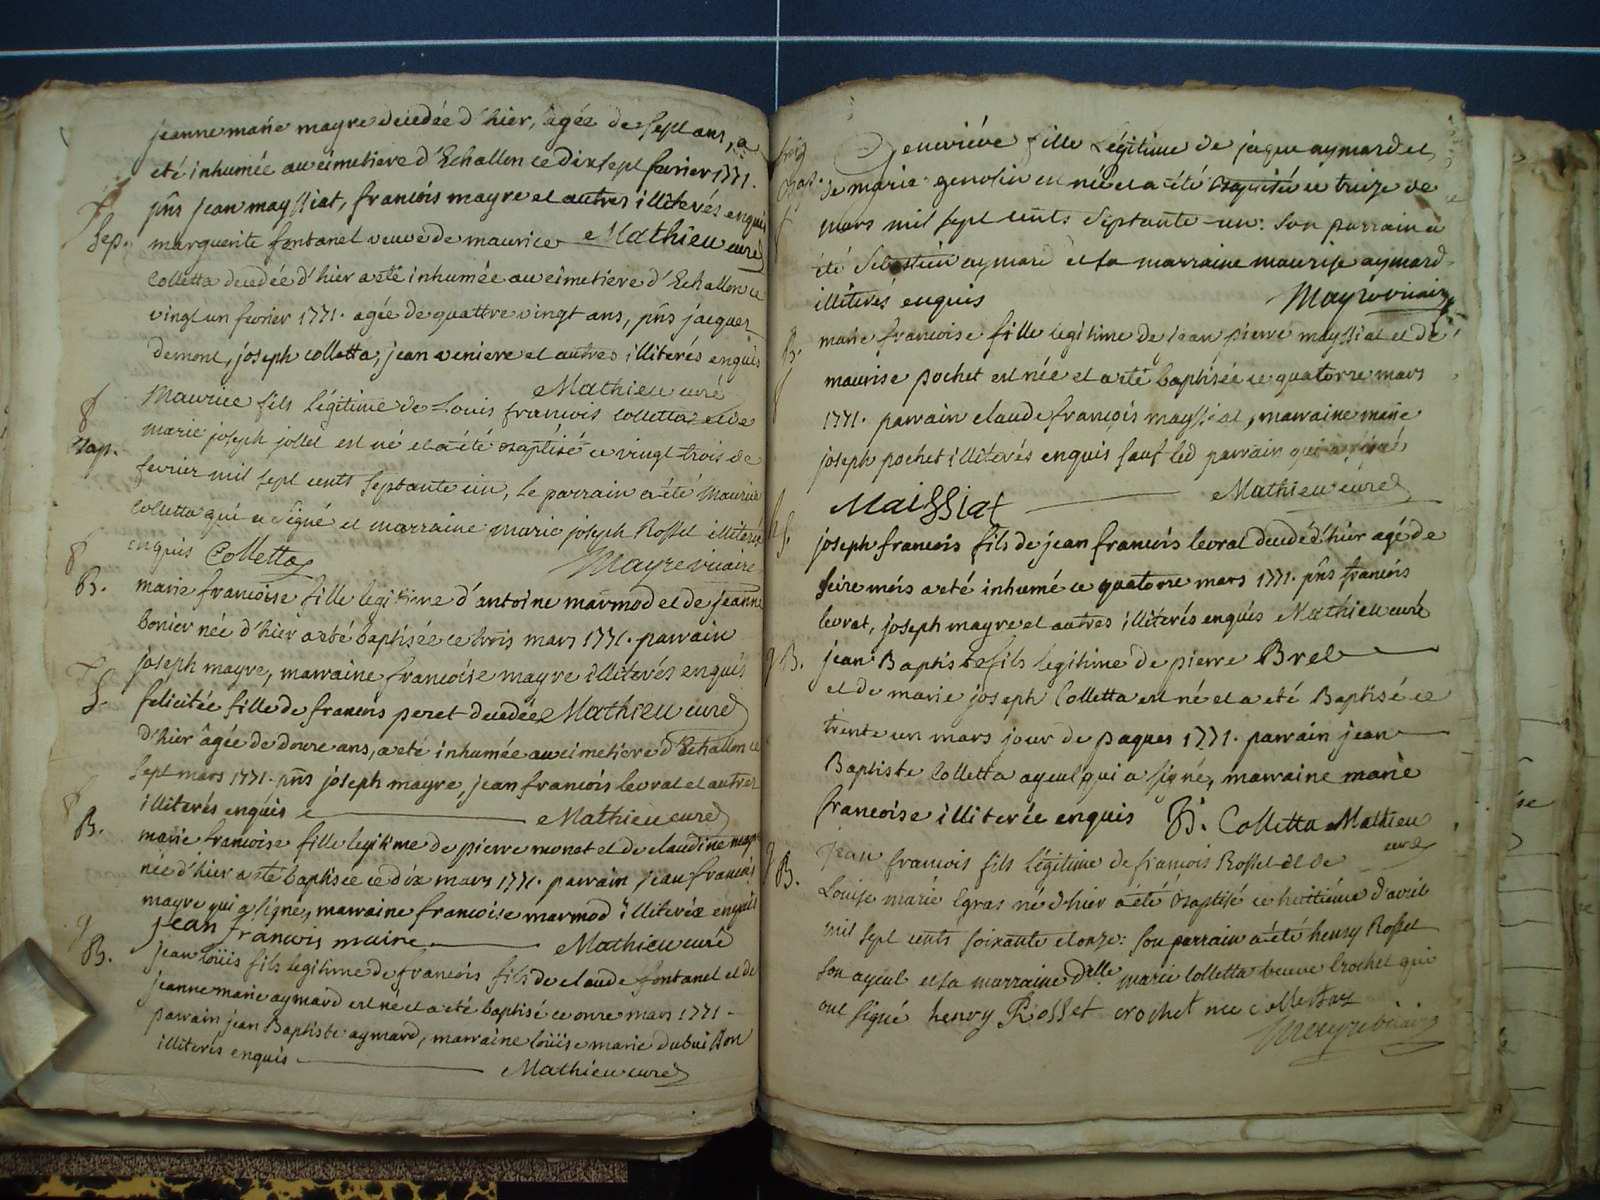 jeanne marie mayre decedée d'hier, agée de sept ans, a
été inhumée au cimetiere d'Echallon ce dix sept fevrier 1771.
pñs jean mayssiat, francois mayre et autres illiterés enquis
Sep. marguerite fontanel veuve de maurice Mathieu curé
Colletta decedée d'hier a eté inhumée au cimetiere d'Echallon ce
vingt un fevrier 1771. agée de quattre vingt ans, pñs jacques
demont, joseph colletta, jean veniere et autres illiterés enquis
Mathieu curé
Maurice fils légitime de Louis francois Colletta et de
Bap. marie joseph jollet est né et a été Baptisé ce vingt trois de
fevrier mil sept cents septante un, le parrain a eté Maurice
Colletta qui a signé et marraine marie joseph Rosset illiterée
enquis Colletta Mayre vicaire
B. marie francoise fille legitime d'antoine marmod et de jeanne
bonier née d'hier a eté baptisée ce trois mars 1771. parrain
joseph mayre, marraine francoise mayre illiterés enquis
S. felicitée fille de francois peret decedée Mathieu curé
d'hier âgée de douze ans, a eté inhumée au cimetiere d'Echallon ce
sept mars 1771. pñs joseph mayre, jean francois levrat et autres
illiterés enquis Mathieu curé
B. marie francoise fille legitime de pierre monet et de claudine
née d'hier a eté baptisée ce dix mars 1771. parrain jean francois
mayre qui a signé, marraine francoise marmod illiterée enquis
jean francois maire Mathieu curé
B. jean loüis fils legitime de francois fils de claude fontanel et de
jeanne marie aymard est né et a eté baptisé ce onze mars 1771
parrain jean Baptiste aymard, marraine loüise marie dubuisson
illiterés enquis Mathieu curé
Geneviéve fille Légitime de jaque aymard et
de marie genolin est née et a été Baptisée ce treize de
mars mil sept cents septante un: son parrain a
été Sebastien aymard et sa marraine maurise aymard
illiterés enquis Mayre vicaire
B. marie francoise fille legitime de jean pierre mayssiat et de
maurise pochet est née et a eté baptisée ce quatorze mars
1771. parrain claude françois mayssiat, marraine marie
joseph pochet illiterés enquis sauf led parrain qui a signé
Maissiat Mathieu curé
S. joseph francois fils de jean francois levrat decedé d'hier agé de
seize mois a eté inhumé ce quatorze mars 1771. pñs francois
levrat, joseph mayre et autres illiterés enquis Mathieu curé
B. jean Baptiste fils legitime de pierre Bret
et de marie joseph Colletta est né et a eté Baptisé ce
trente un mars jour de paques 1771. parrain jean
Baptiste Colletta ayeul qui a signé, marraine marie
francoise illiterée enquis B. Colletta Mathieu
curé
jean francois fils légitime de françois Rosset et de
B. Louise marie Egras né d'hier a été Baptisé ce huitième d'avril
mil sept cents soixante et onze: son parrain a été henry Rosset
son ayeul et sa marraine Delle. marie Colletta veuve Crochet qui
ont signé henry Rosset crochet née colletaz
Mayre vicaire